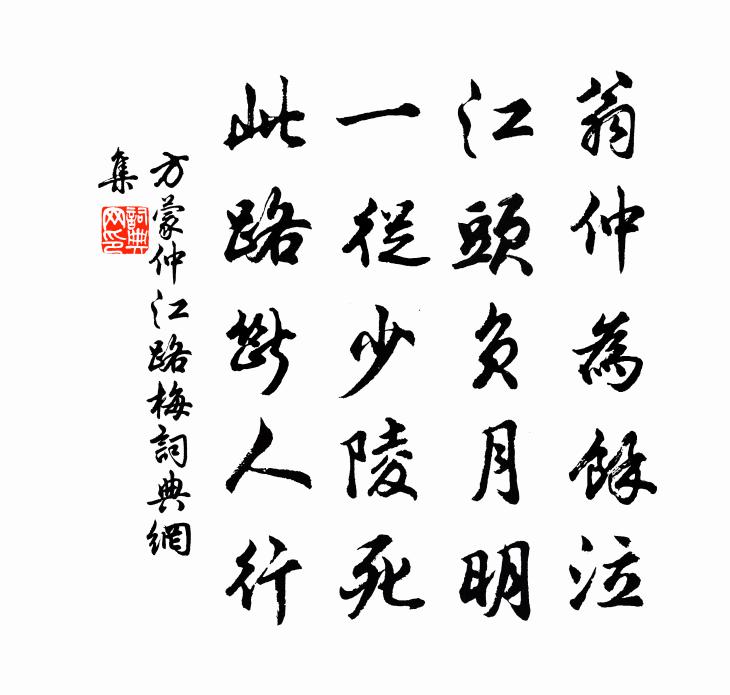 翁仲為餘泣
江頭負月明
一從少陵死
此路斷人行
方蒙仲江路梅詞典網
集
詞典網印